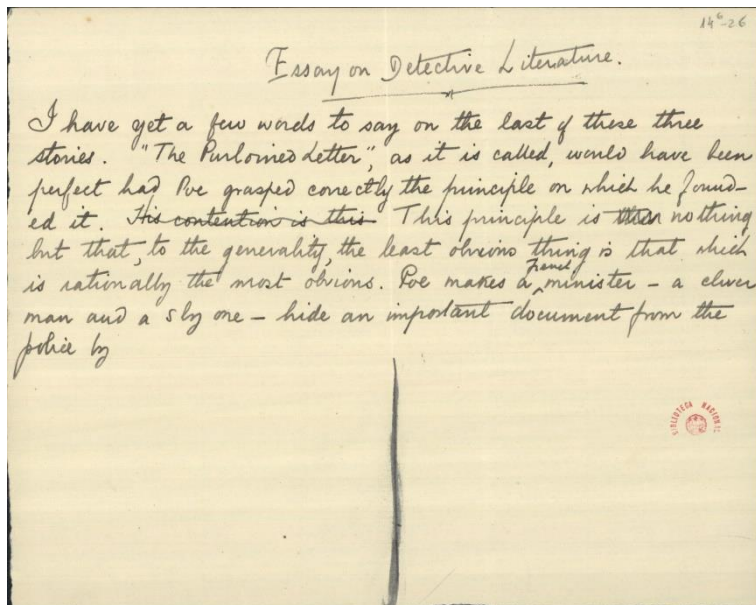 14⁶-26
Essay on Detective Literature.
I have yet a few words to say on the last of these three
stories. "The Purloined Letter", as it is called, would have been
perfect had Poe grasped correctly the principle on which he found-
ed it. His contention is this This principle is nothing
but that, to the generality, the least obvious thing is that which
is rationally the most obvious. Poe makes a French minister – a clever
man and a sly one – hide an important document from the
police by
BIBLIOTECA NACIONAL